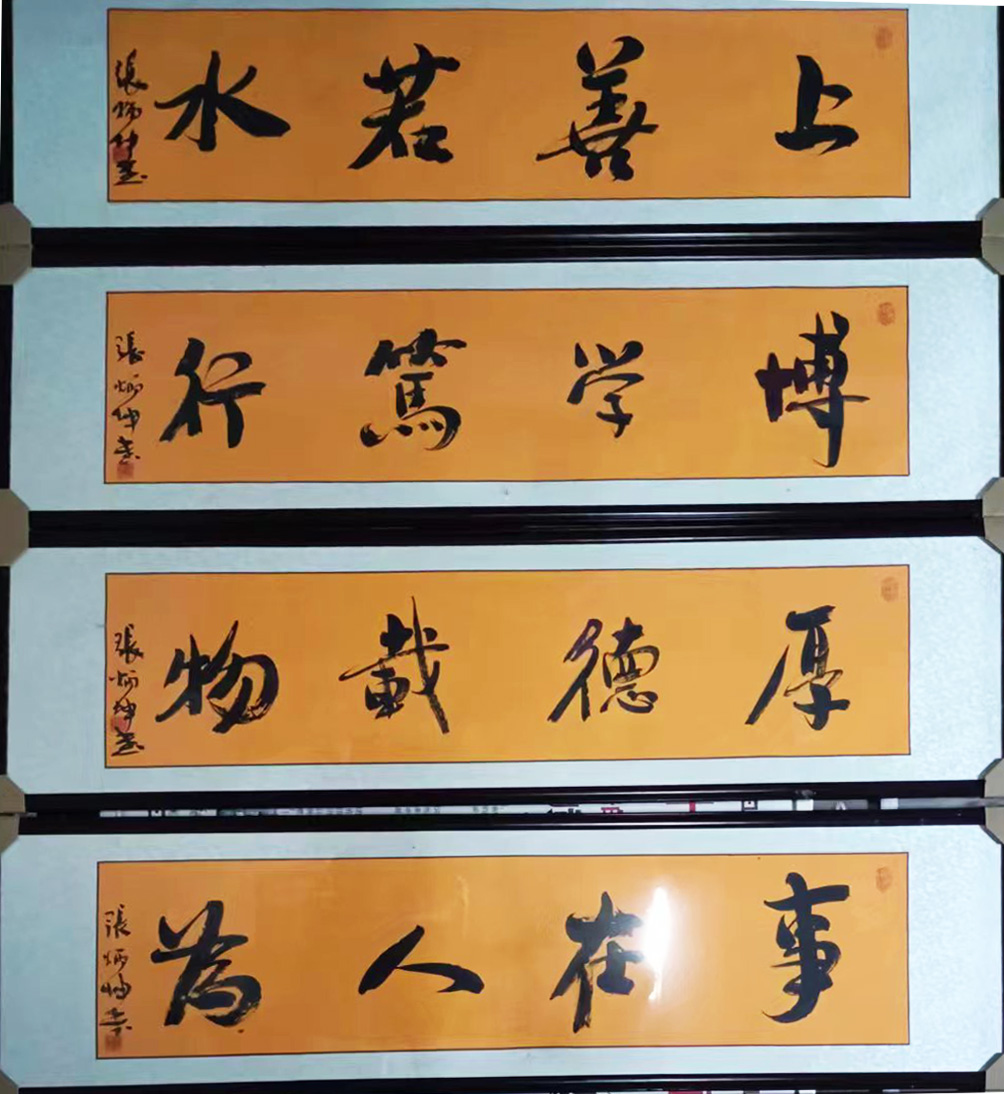 上善若水
張炳坤書
博学篤行
張炳坤書
厚德載物
張炳坤書
事在人為
張炳坤書